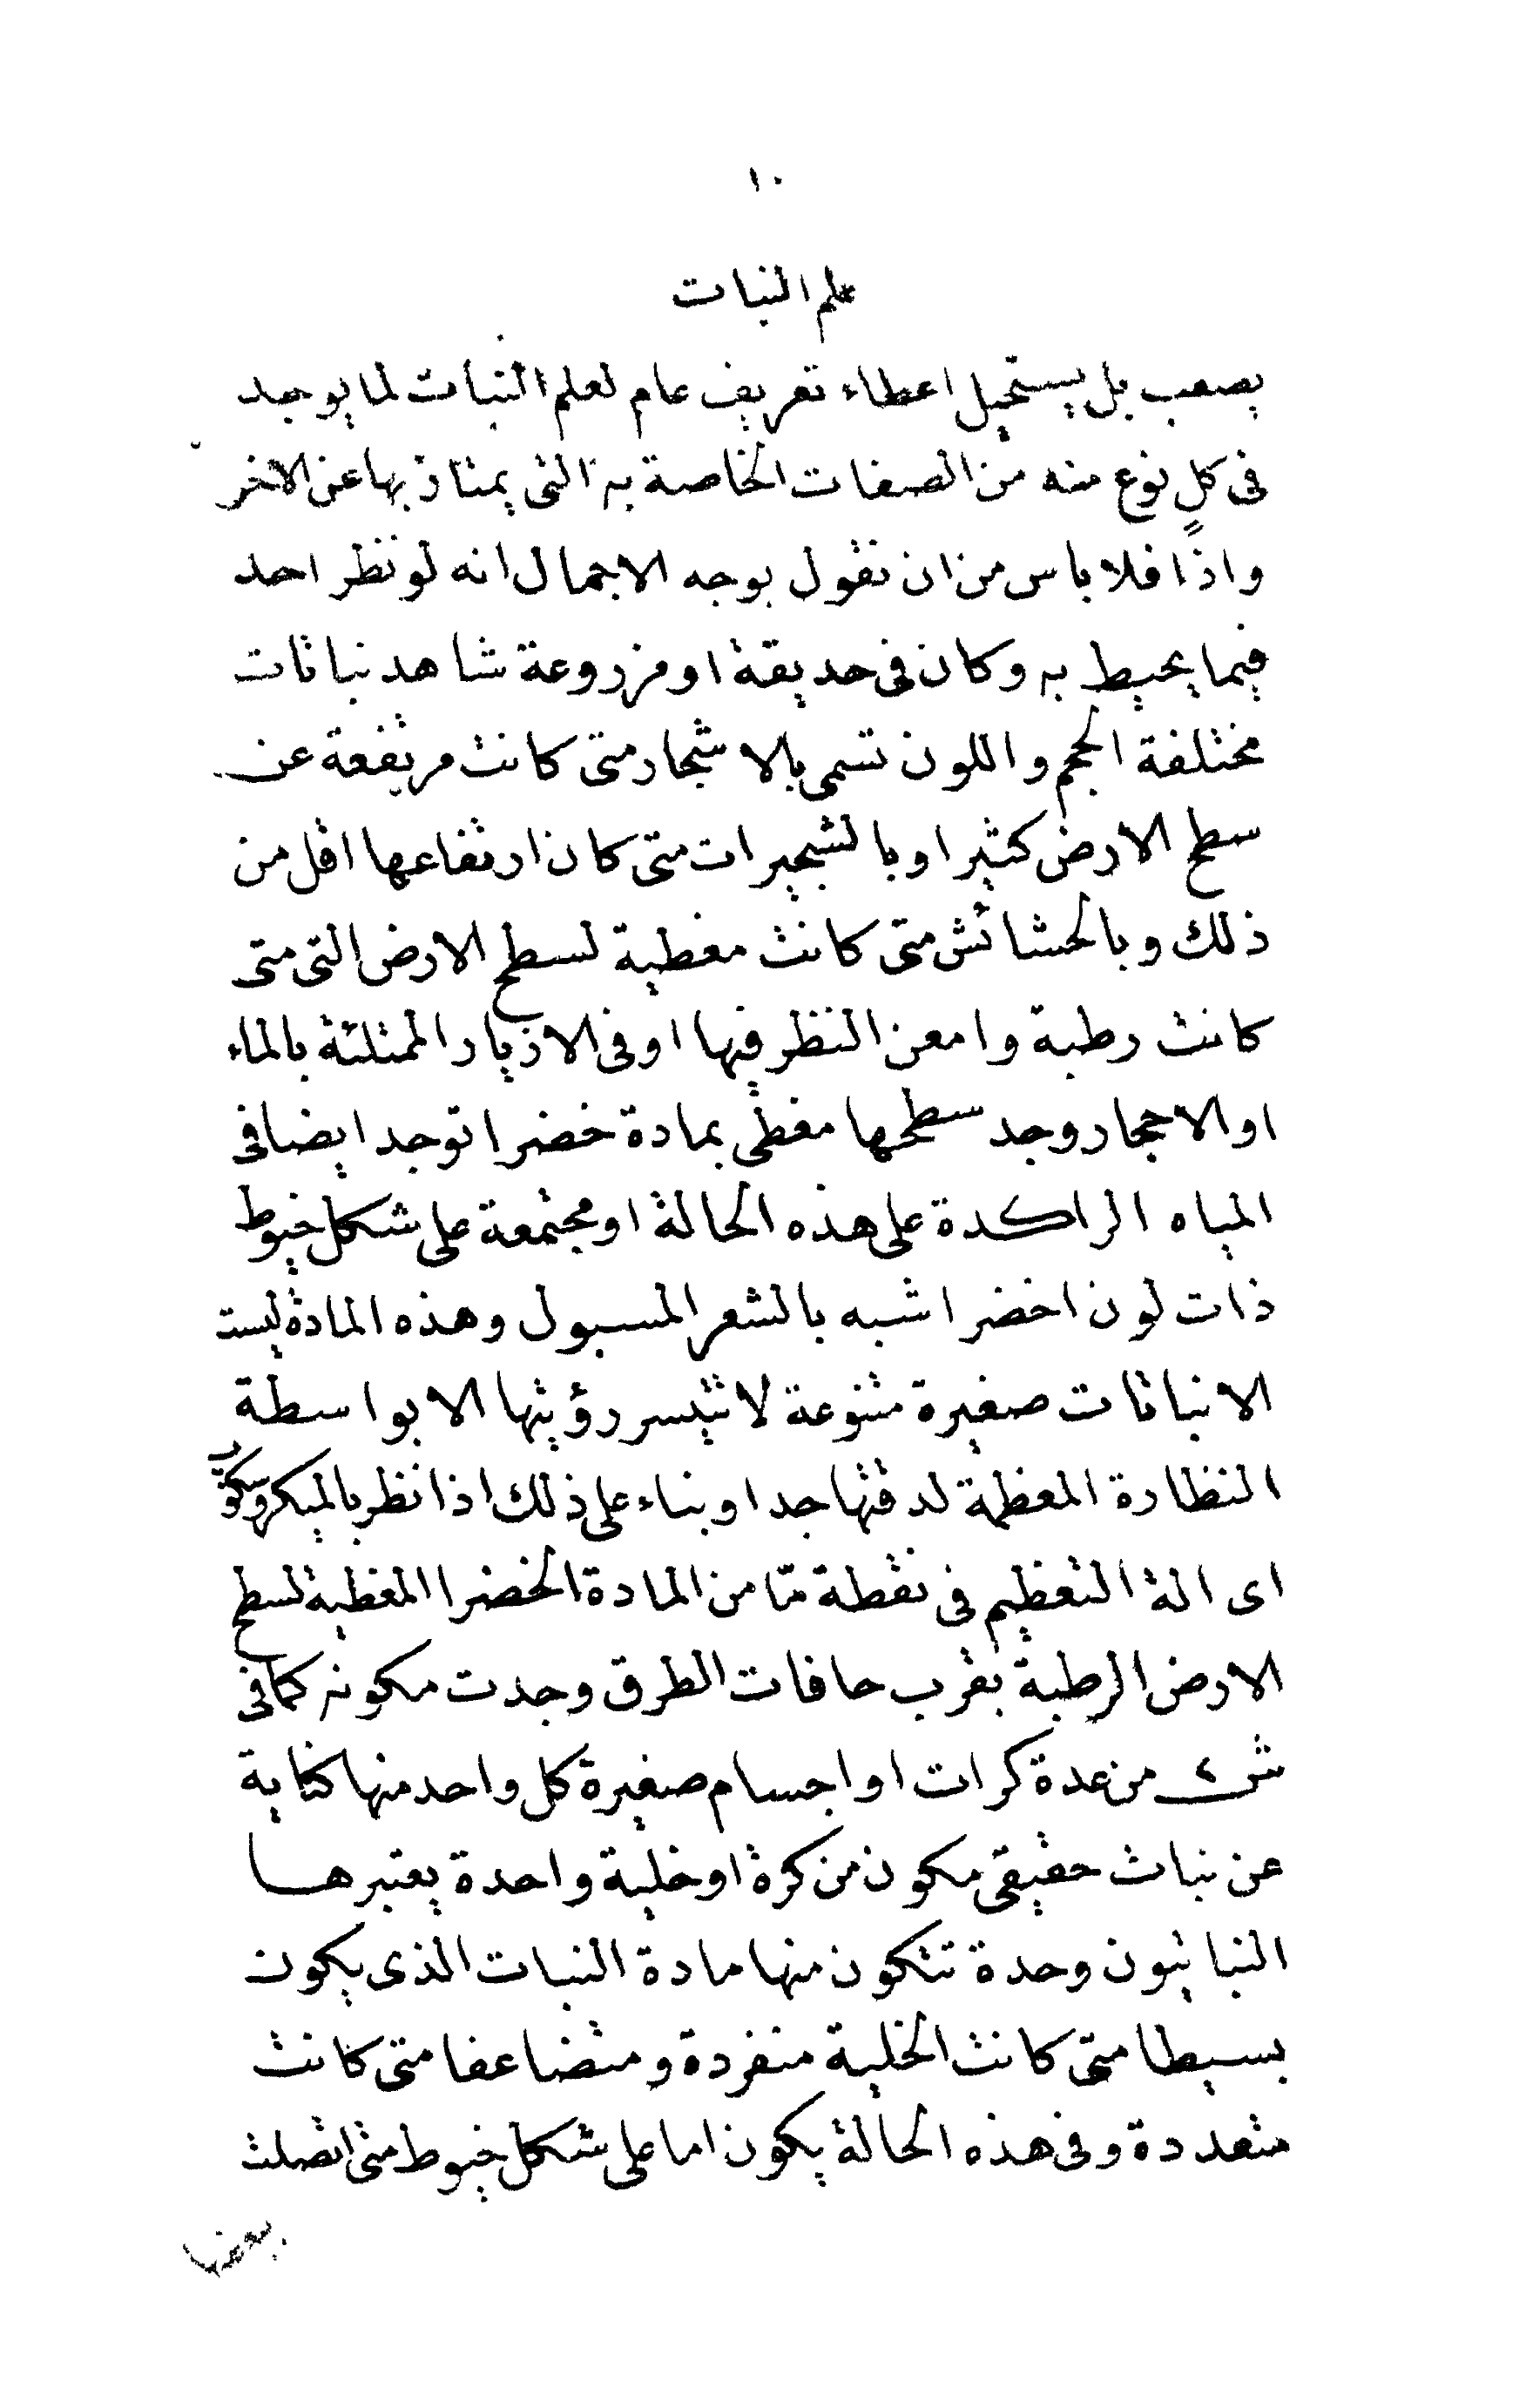 ١٠
علم النبات
يصعب بل يستحيل اعطاء تعريف عام لعلم النبات لما يوجد
فى كلٍ نوع منه من الصفات الخاصة به التى يمتاز بها عن الاخر
واذًا فلا باس من ان نقول بوجه الاجمال انه لو نظر احد
فيما يحيط به وكان فى حديقة او مزروعة شاهد نباتات
مختلفة الحجم واللون تسمى بالاشجار متى كانت مرتفعة عن
سطح الارض كثيرا وبالشجيرات متى كان ارتفاعها اقل من
ذلك وبالحشائش متى كانت مغطية لسطح الارض التى متى
كانت رطبة وامعن النظر فيها او فى الازيار الممتلئة بالماء
او الاحجار وجد سطحها مغطى بمادة خضرا توجد ايضا فى
المياه الراكدة على هذه الحالة او مجتمعة على شكل خيوط
ذات لون اخضر اشبه بالشعر المسبول وهذه المادة ليست
الا نباتات صغيرة متنوعة لا تتيسر رؤيتها الا بواسطة
النظارة المعظمة لدقتها جدا وبناء على ذلك اذا نظر بالميكروسكوب
اى الة التعظيم فى نقطة مّا من المادة الخضرا المغطية لسطح
الارض الرطبة بقرب حافات الطرق وجدت مكونه كما فى
ش ٤ من عدة كرات او اجسام صغيرة كل واحد منها كناية
عن نبات حقيقى مكون من كرة او خلية واحدة يعتبرها
النباتيون وحدة تتكون منها مادة النبات الذى يكون
بسيطا متى كانت الخلية منفردة ومتضاعفا متى كانت
متعددة وفى هذه الحالة يكون اما على شكل خيوط متى اتصلت
بعضها